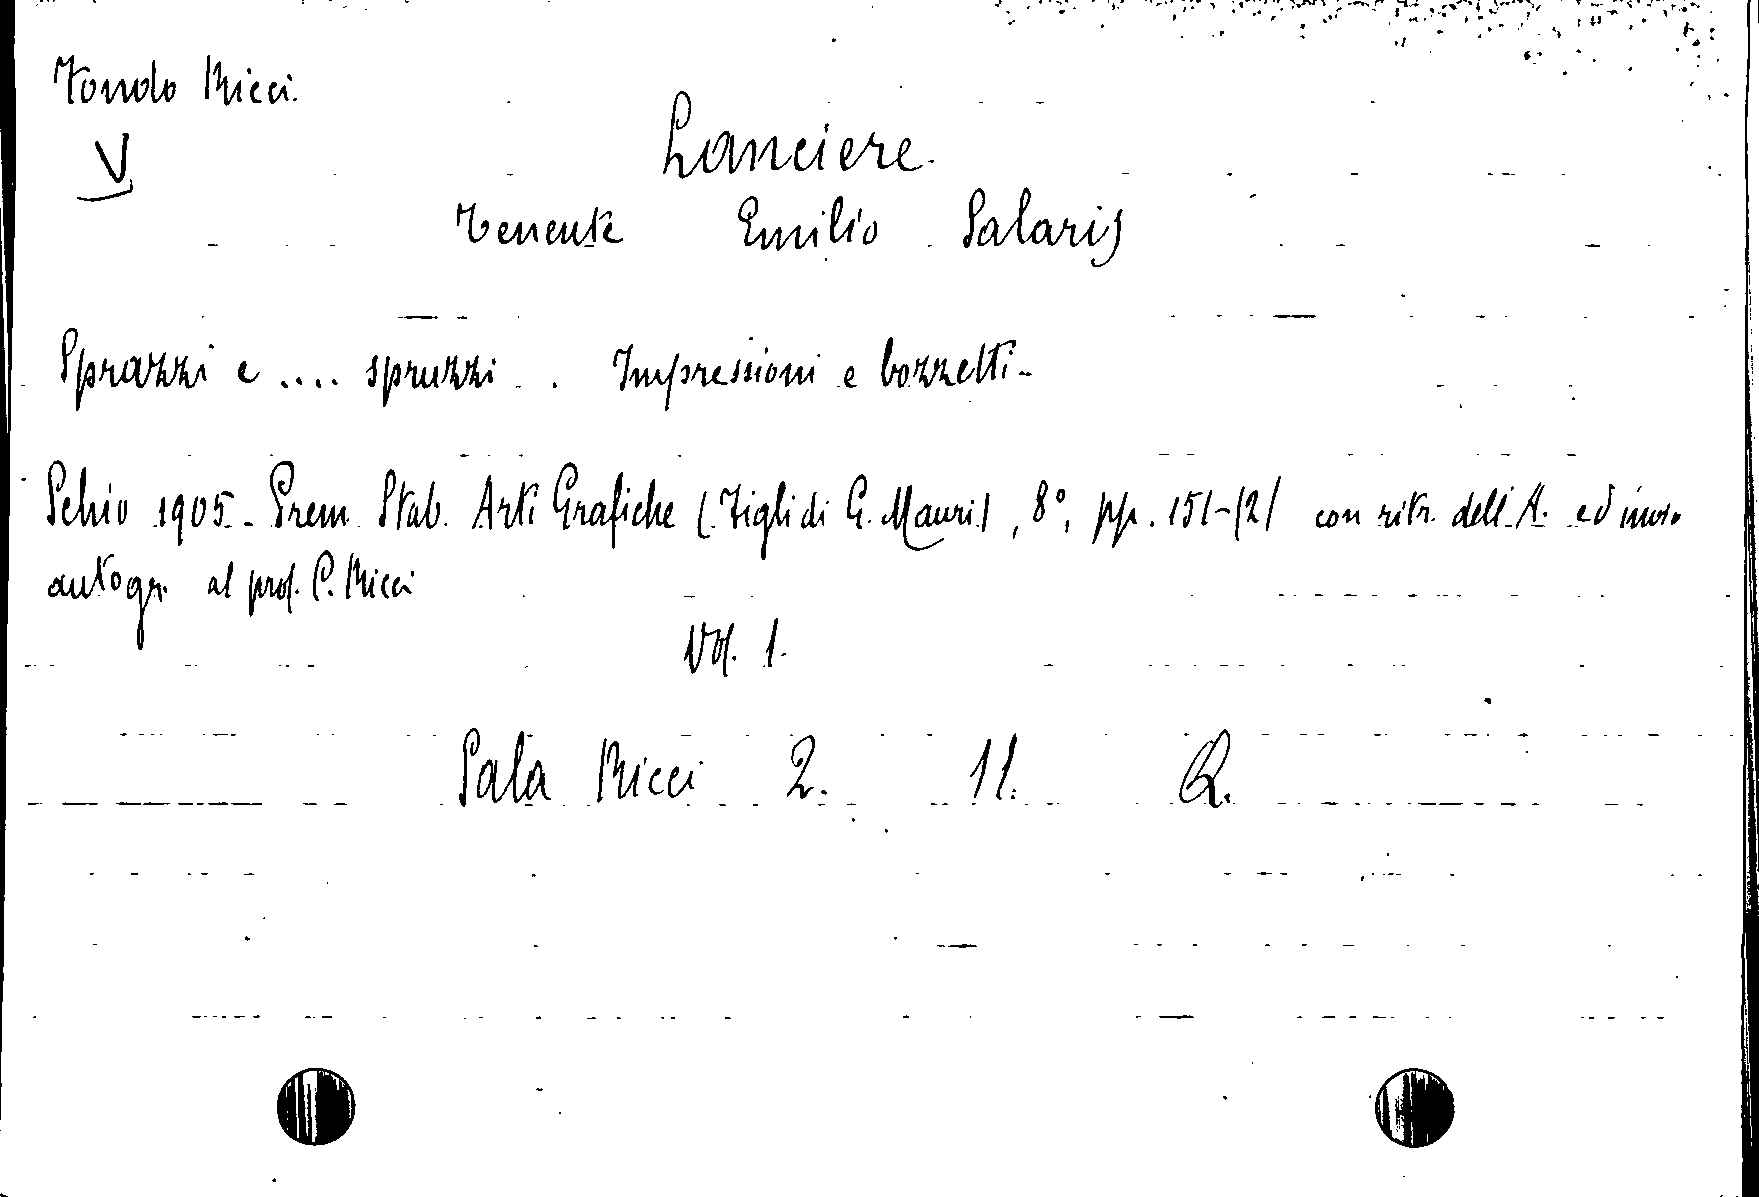 Fondo Ricci.
V
Lanciere.
Tenente Emilio Salaris
Sprazzi e .... spruzzi. Impressioni e bozzetti-
Schio 1905. Prem. Stab. Arti Grafiche (Figli di G. Mauri), 8°, pp. 151-(2) con ritr. dell'A. ed
autogr. al prof. C. Ricci
Vol. 1.
Sala Ricci 2. 11. Q.